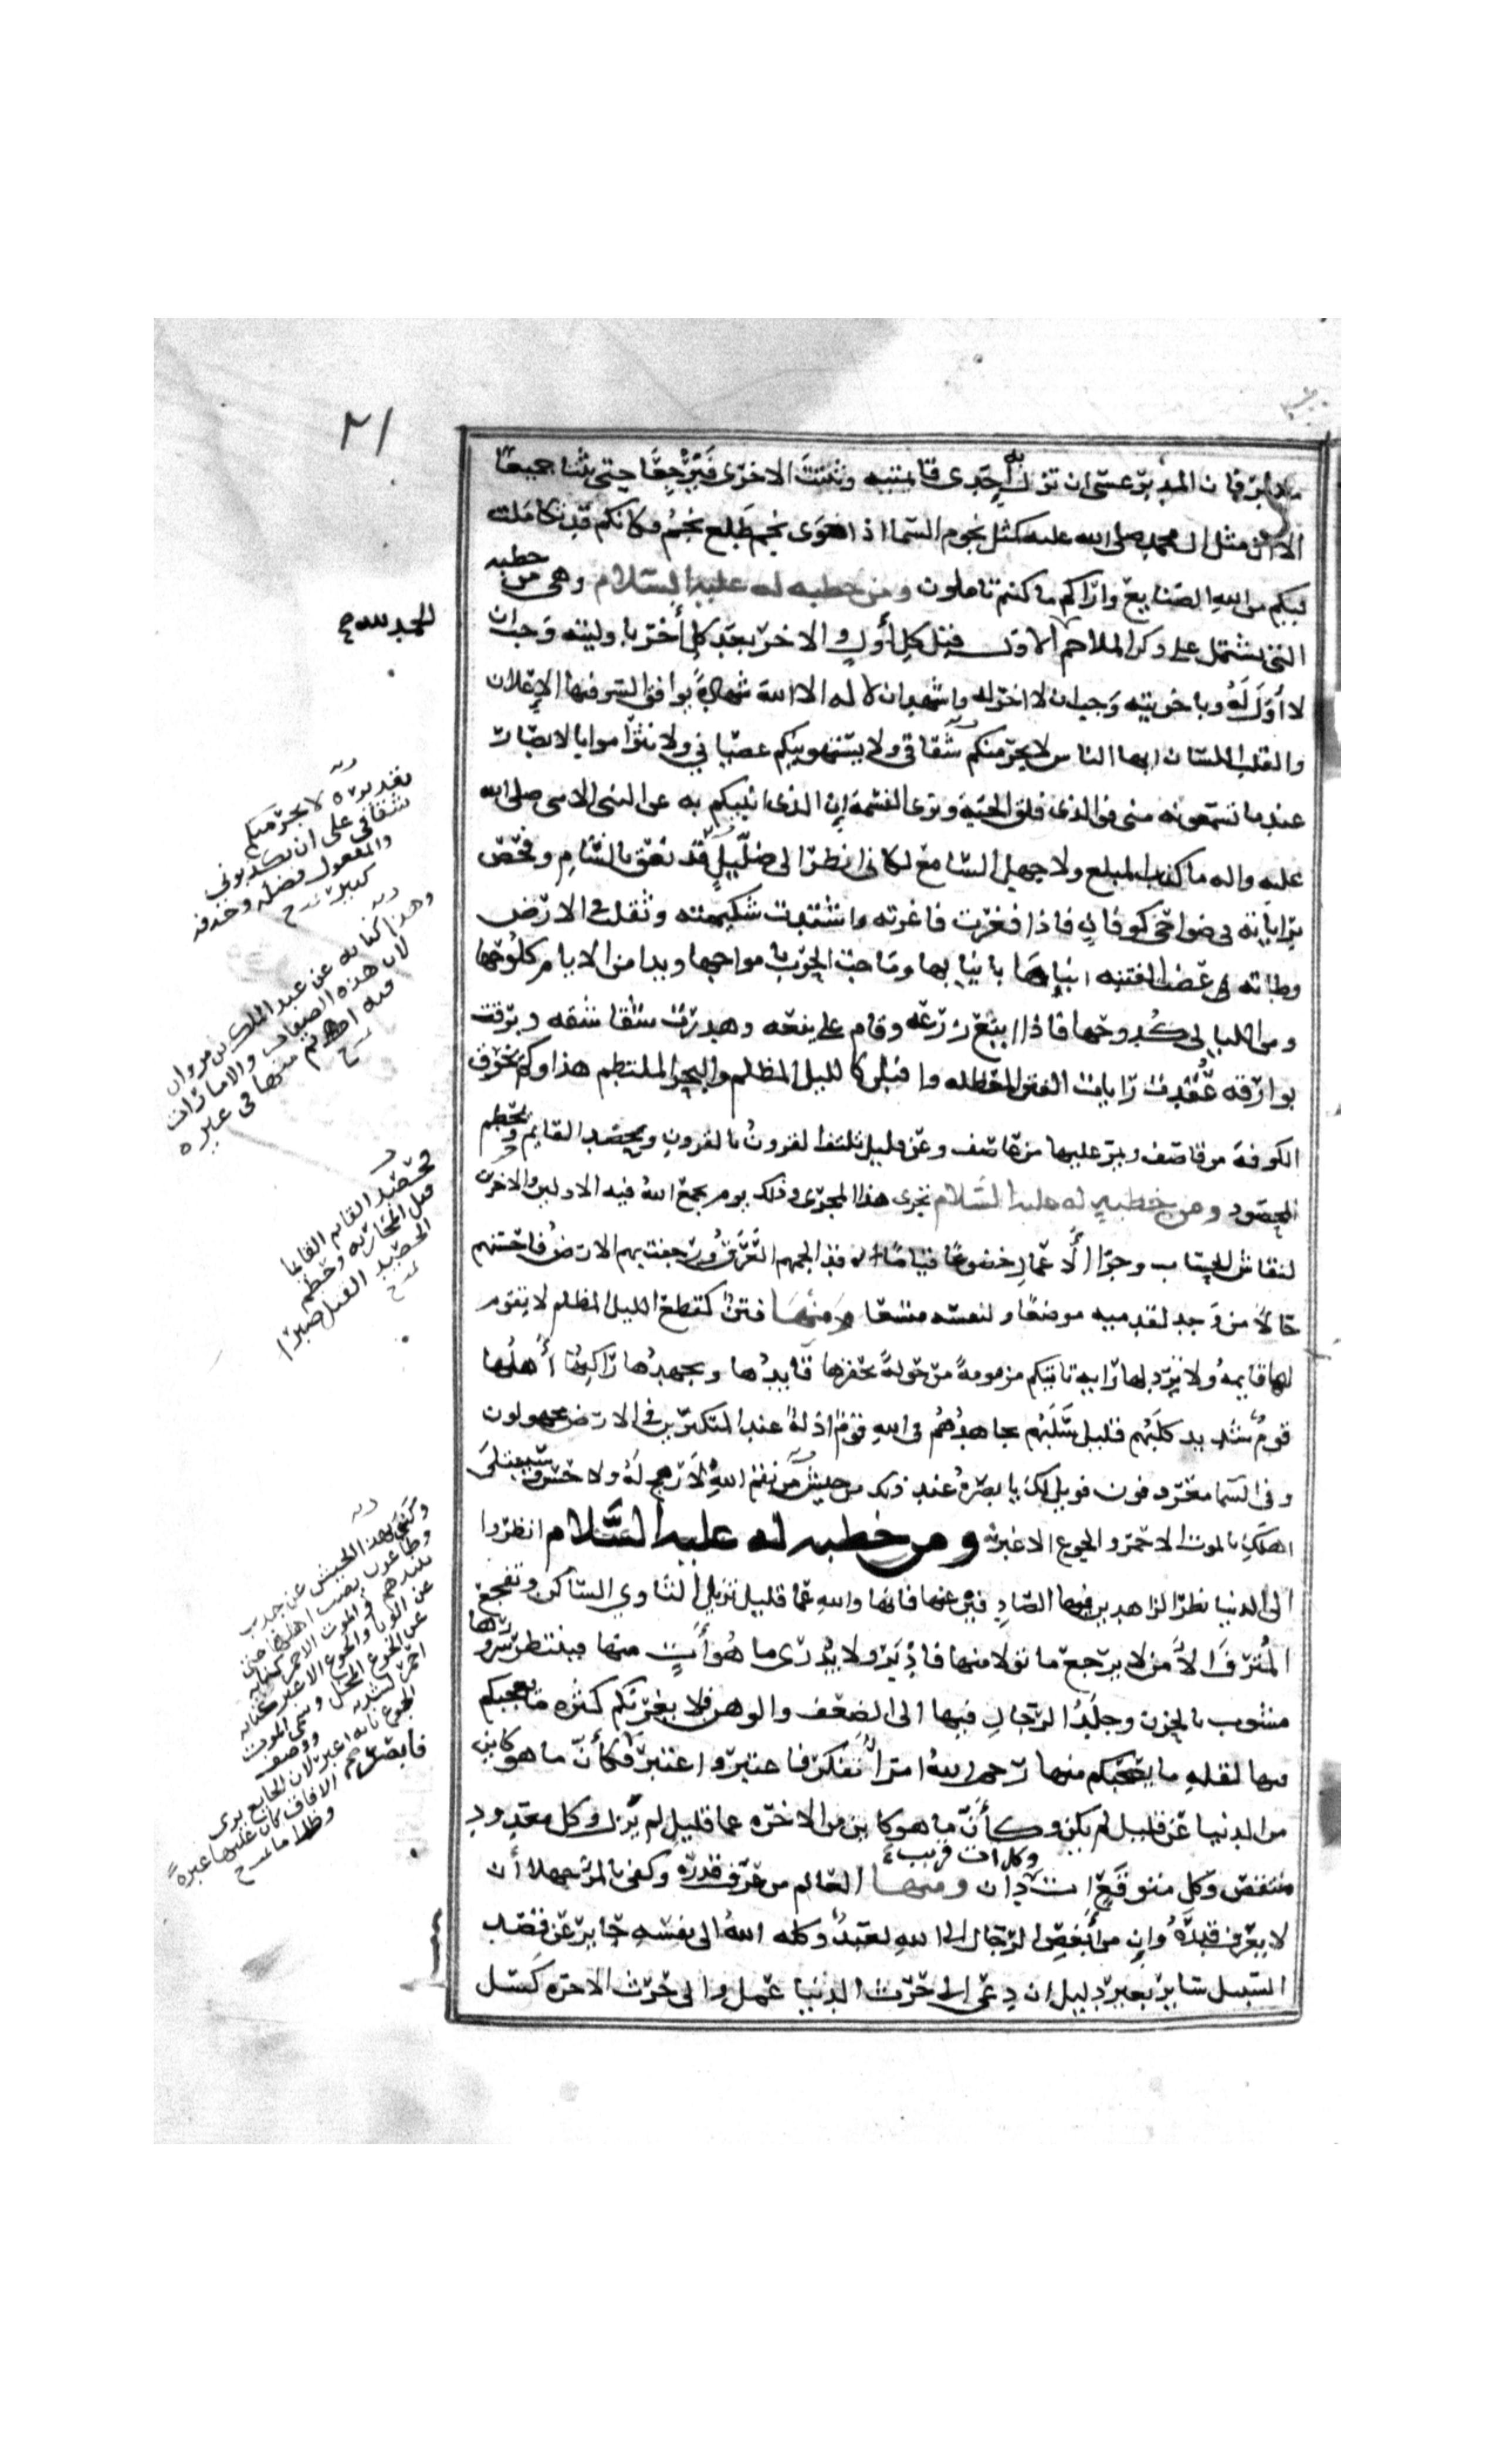 ٢١
مدبر فان المدبر عسى ان تزل احدى قائمتيه وتثبت الاخرى فترجعا حتى تثبتا جميعا
الا ان مثل ال محمد صلى الله عليه كمثل نجوم السما اذا هوى نجم طلع نجم وكانكم قد تكاملت
فيكم من الله الصنايع واراكم ما كنتم تاملون ومن خطبه له عليه السلام وهى من خطبه
التى تشتمل على ذكر الملاحم الاول قبل كل أول والاخر بعد كل أخر باوليته وجب ان
لا أول لَهُ وباخريته وجب ان لا اخر له واشهد ان لا اله الا الله شهادةً يوافق السر فيها الإعلان
والقلب اللسان ايها الناس لا يجرمنكم شقاقى ولا يستهوينكم عصيانى ولا تتراموا بالابصار
عند ما تسمعونه منى فو الذى فلق الحبة وبرى النسمة إن الذى انبيكم به عن النبى الامى صلى الله
عليه واله ما كذب المبلغ ولا جهل السامع لكانى انظر الى ضليلٍ قد نعق بالشام وفحص
براياته فى ضواحى كوفان فاذا فغرت فاغرته واشتدت شكيمته وثقلت فى الارض
وطاته عضت الفتنه ابناءها بانيابها وماجت الحرب بامواجها وبدا من الايام كلوحها
ومن الليالى كدوحها فاذا اينع زرعه وقام على ينعه وهدرت شقاشقه وبرقت
بوارقه عُقدت رايات الفتن المعضله واقبلن كالليل المظلم والبحر الملتطم هذا وكم يخرق
الكوفة من قاصف ويمر عليها من عاصف وعن قليل تلتف القرون بالقرون ويحصد القايم ويحطم
المحصود ومن خطبه له عليه السلام تجرى هذا المجرى وذلك يوم يجمع اللهُ فيه الاولين والاخرين
لنقاش الحساب وجزا الأعمال خضوعًا قيامًا قد الجمهم العَرَقُ ورجفت بهم الارض فاحسنهم
حالًا من وجد لقدميه موضعًا ولنفسه متسعا ومنها فتنٌ كقطع الليل المظلم لا يقوم
لها قايمه ولا ترد لها رايه تاتيكم مزمومةً مرحولةً يحفزها قايدُها ويجهدها راكبُها أهلُها
قومٌ شديد كلَبُهم قليل سَلَبُهم يجاهدُهم فى الله قومٌ اذلةٌ عند المتكبرين فى الارض مجهولون
وفى السما معروفون فويل لك يا بصرهُ عند ذلك من جيش من نقم اللهِ لا رهج لَهُ ولا حس وسيبتلى
اهلك بالموت الاحمر والجوع الاغبر ومن خطبه له عليه السلام انظروا
الى الدنيا نظر الزاهدين فيها الصادفين عنها فانها والله عما قليل تزيل الثاوى الساكن وتفجع
المُترَفَ الآمن لا يرجع ما تولا منها فادبَرَ ولا يُدرى ما هُو أتٍ منها فينتظر سرورها
مشوب بالحزن وجلَدُ الرجال فيها الى الضعف والوهن فلا يغرنكم كثره ما يعجبكم
فيها لقله ما يصحبكم منها رحم اللهُ امرأً تفكر فاعتبر واعتبر فأبصر فكأنّ ما هو كاين
من الدنيا عن قليل لم يكن وكأنّ ما هو كاين من الاخره عما قليل لم يزل وكل معدود
منتقص وكل متوقع ات وكل ات قريب دان ومنها العالم من عرف قدره وكفى بالمر جهلا أن
لا يعرف قدرهُ وان من أبغض الرجال الى الله لعبدٌ وكله اللهُ الى نفسهِ جاير عن قصد
السبيل ساير بغير دليل ان دعى الى حرث الدنيا عمل والى حرث الاخره كسل
الحمد لله
لا يجرمنكم
شقاقى على ان تكذبونى
والمفعول فضله وحذفه
كثير
وهذا كنايه عن عبد الملك بن مروان
لان هذه الصفات والامارات
فيه اتم منها فى غيره
يحصد القايم
قبل المحاربه ويحطم
الحصيد القتل صبرا
وكنى بهذا الجيش عن جدب
وطاعون يصيب اهلها حتى
يبيدهم والموت الاحمر كنايه
عن الوبا والجوع الاغبر كنايه
عن المحل وسمى الموت
احمر لشدته ووصف
الجوع بانه اغبر لان الجايع يرى
الافاق كان عليها غبره
وظلاما
فابصر